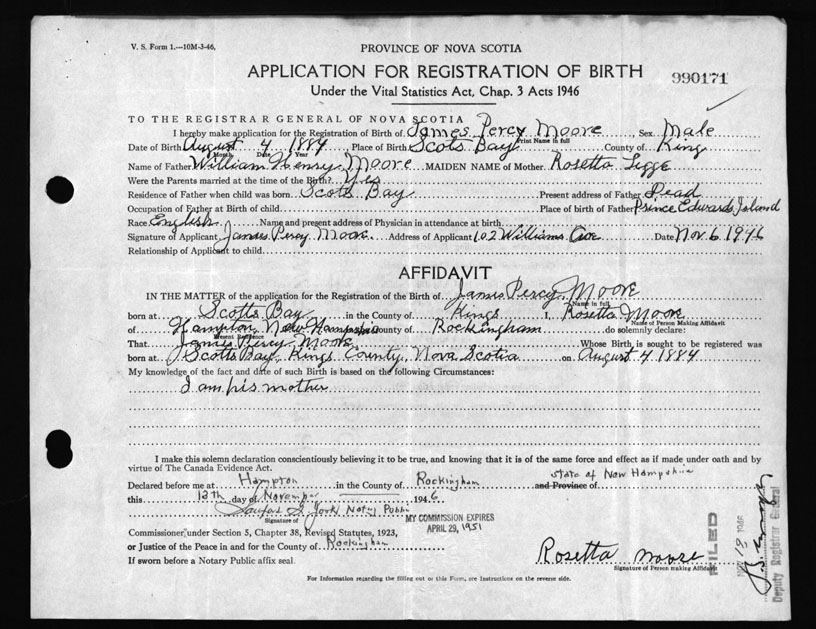 V. S. Form 1.—10M-3-46.
PROVINCE OF NOVA SCOTIA
APPLICATION FOR REGISTRATION OF BIRTH
990171
Under the Vital Statistics Act, Chap. 3 Acts 1946
TO THE REGISTRAR GENERAL OF NOVA SCOTIA
I hereby make application for the Registration of Birth of James Percy Moore Sex Male
Print Name in full
Date of Birth August 4 1884 Place of Birth Scots Bay County of King
Month Date Year
Name of Father William Henry Moore MAIDEN NAME of Mother Rosetta Legge
Were the Parents married at the time of the Birth? Yes
Residence of Father when child was born Scots Bay Present address of Father Dead
Occupation of Father at Birth of child Place of birth of Father Prince Edwards Island
Race English Name and present address of Physician in attendance at birth
Signature of Applicant James Percy Moore Address of Applicant 102 Williams Ave Date Nov 6 1946
Relationship of Applicant to child
AFFIDAVIT
IN THE MATTER of the application for the Registration of the Birth of James Percy Moore
Name in full
born at Scotts Bay in the County of Kings I, Rosetta Moore
Name of Person Making Affidavit
of Hampton, New Hampshire County of Rockingham do solemnly declare:
Present Residence
That James Percy Moore Whose Birth is sought to be registered was
born at Scotts Bay, Kings County, Nova Scotia on August 4 1884
My knowledge of the fact and date of such Birth is based on the following Circumstances:
I am his mother
I make this solemn declaration conscientiously believing it to be true, and knowing that it is of the same force and effect as if made under oath and by
virtue of The Canada Evidence Act.
Declared before me at Hampton in the County of Rockingham and Province of State of New Hampshire
this 12th day of November 1946
Notary Public
Signature of
MY COMMISSION EXPIRES
APRIL 29, 1951
Commissioner under Section 5, Chapter 38, Revised Statutes, 1923,
or Justice of the Peace in and for the County of Rockingham
If sworn before a Notary Public affix seal.
Rosetta Moore
Signature of Person making Affidavit
FILED
Deputy Registrar General
For Information regarding the filling out of this Form, see Instructions on the reverse side.